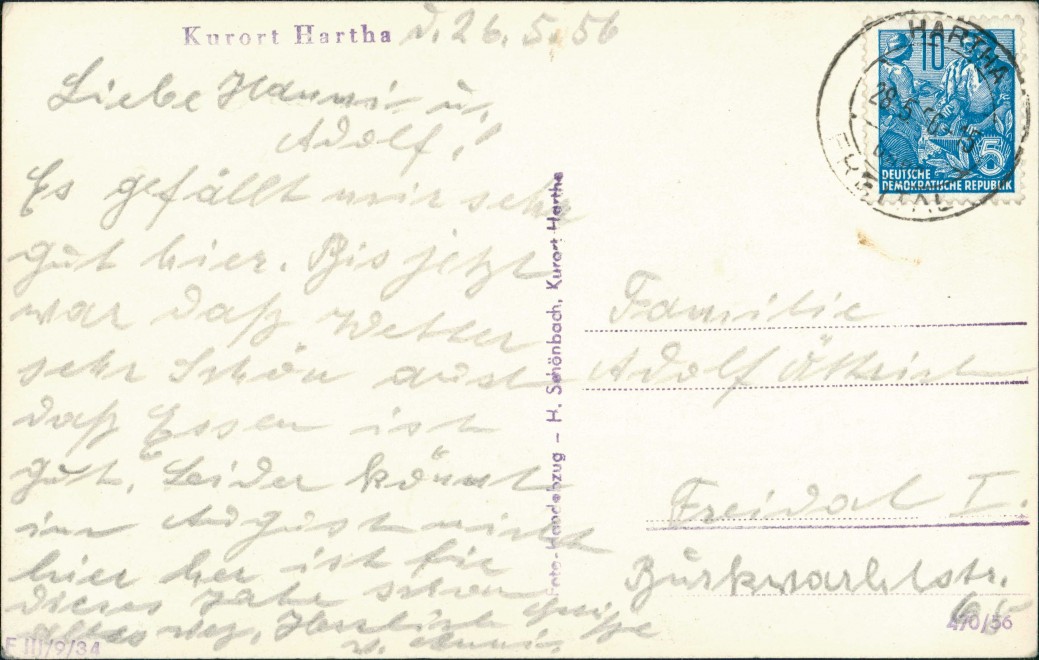 Kurort Hartha d. 26.5.56
Liebe Hanni u.
Adolf!
Es gefällt mir sehr
gut hier. Bis jetzt
war daß Wetter
sehr Schön auch
daß Essen ist
gut. Leider könnt
im August nicht
hier her ist für
dieses Jahr schon
alles weg. Herzlich Grüße
v.
Foto-Handabzug – H. Schönbach, Kurort Hartha
F III/9/34
HARTHA
28.5.56-15
10
5
DEUTSCHE
DEMOKRATISCHE REPUBLIK
Familie
Adolf
Freidal I.
65
4/0/56